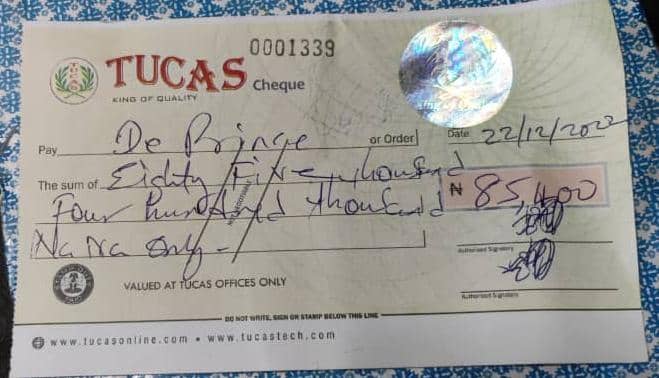 0001339
TUCAS Cheque
KING OF QUALITY
Pay De Bringe or Order Date 22/12/2022
The sum of Eighty Five thousand
₦ 85,400
Four hundred thousand
Na Na Only
Authorised Signatory
VALUED AT TUCAS OFFICES ONLY
Authorised Signatory
DO NOT WRITE, SIGN OR STAMP BELOW THIS LINE
www.tucasonline.com • www.tucastech.com